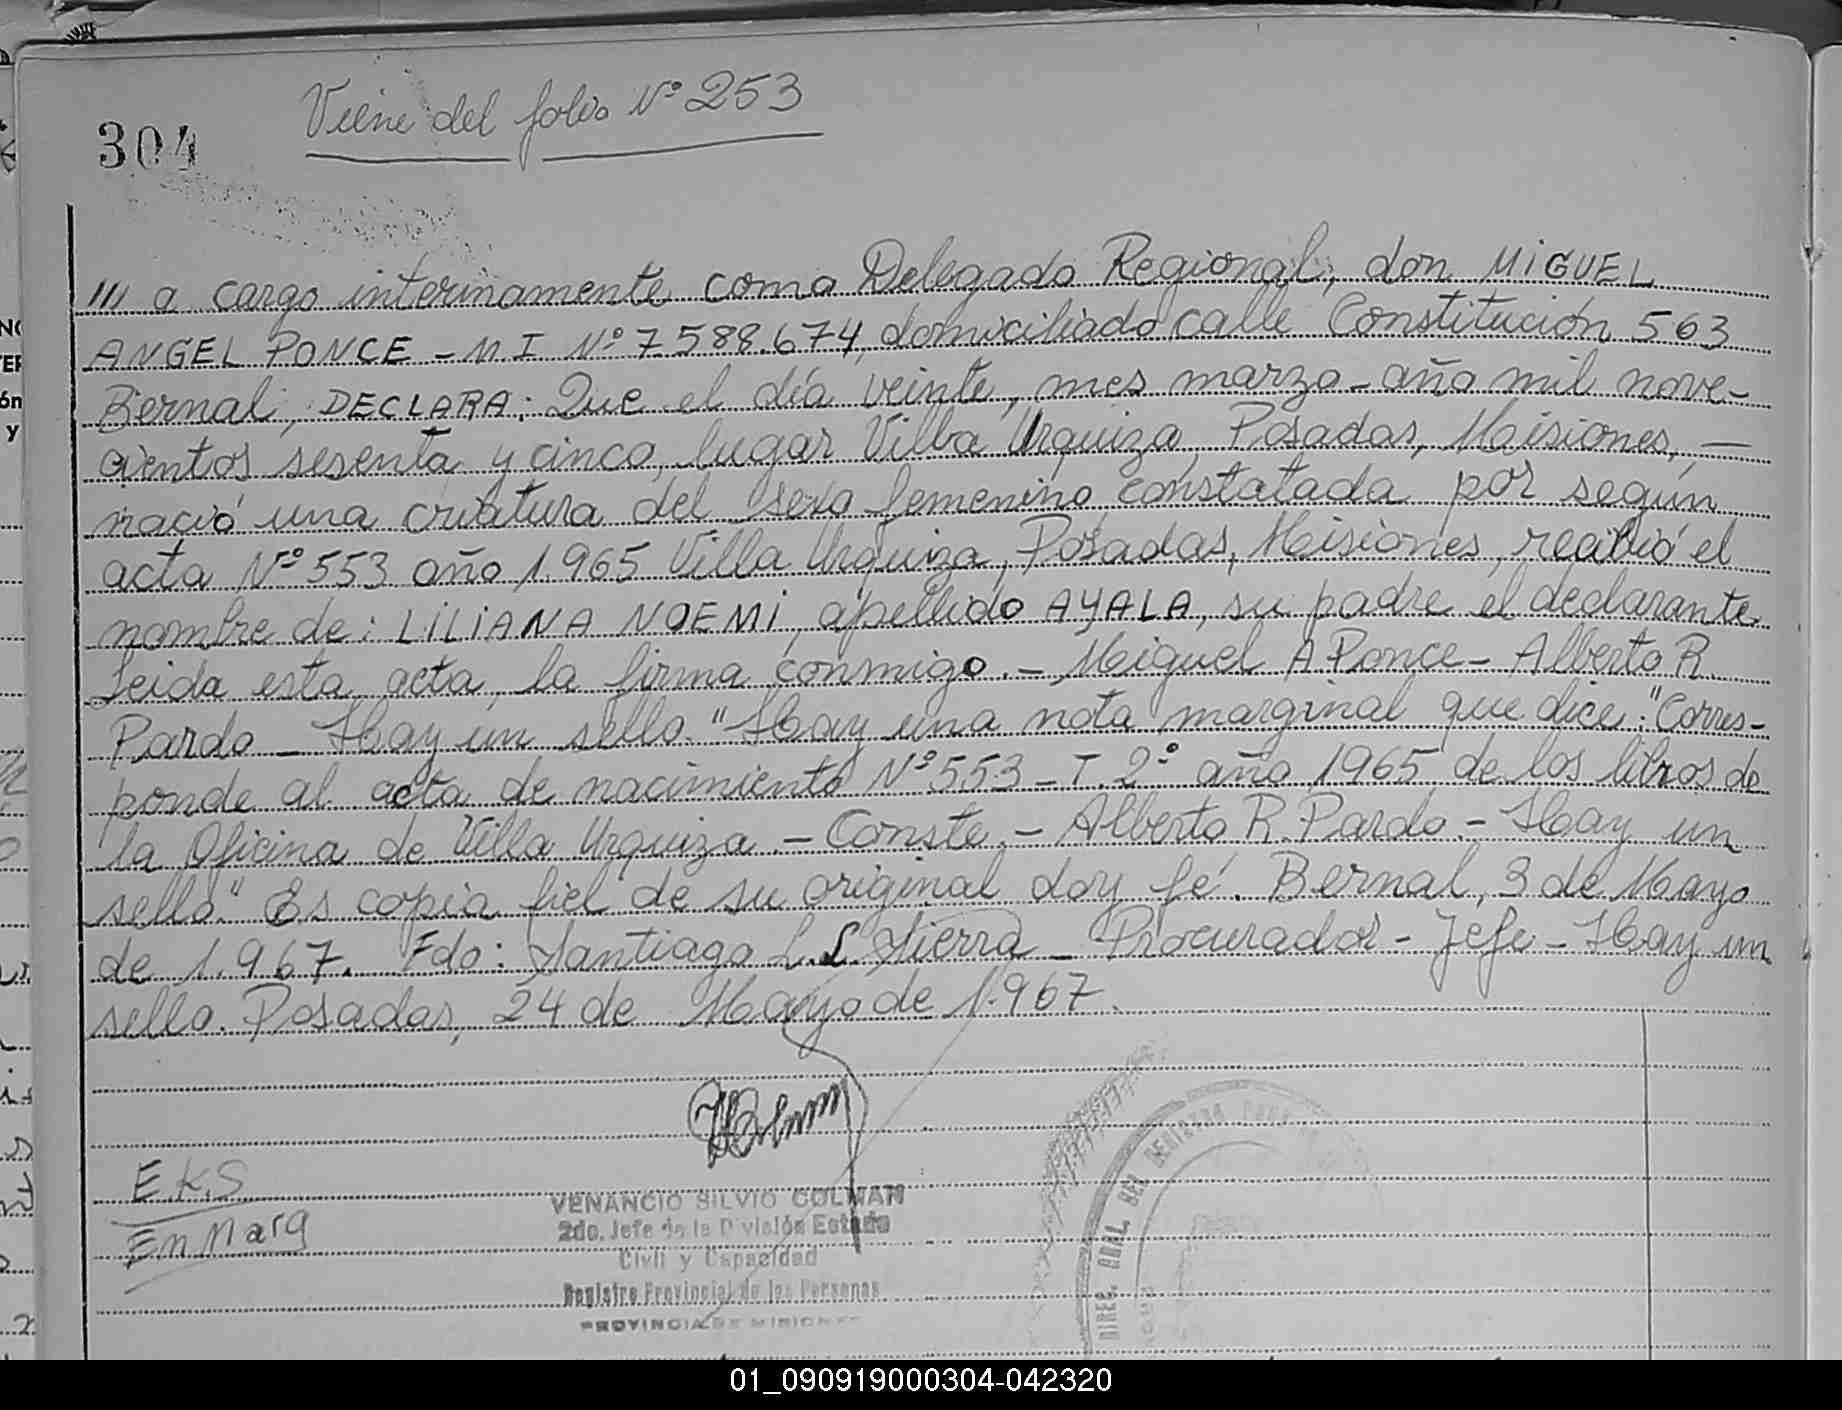 304
Viene del folio Nº 253
/// a cargo interinamente como Delegado Regional, don MIGUEL
ANGEL PONCE - M I Nº 7588.674, domiciliado calle Constitución 563
Bernal, DECLARA: Que el día veinte, mes marzo - año mil nove-
cientos sesenta y cinco, lugar Villa Urquiza, Posadas, Misiones, -
nació una criatura del sexo femenino constatada por según
acta Nº 553 año 1.965 Villa Urquiza, Posadas, Misiones, recibió el
nombre de: LILIANA NOEMI, apellido AYALA, su padre el declarante.
Leida esta acta, la firma conmigo. - Miguel A Ponce - Alberto R.
Pardo - Hay un sello. "Hay una nota marginal que dice: "Corres-
ponde al acta de nacimiento Nº 553 - T. 2º año 1965 de los libros de
la Oficina de Villa Urquiza. - Conste. - Alberto R. Pardo. - Hay un
sello." Es copia fiel de su original doy fé. Bernal, 3 de Mayo
de 1.967. Fdo: Santiago L. L. Sierra - Procurador - Jefe - Hay un
sello. Posadas, 24 de Mayo de 1.967.
E.K.S
En Marg
VENANCIO SILVIO COLMAN
2do. Jefe de la División Estado
Civil y Capacidad
Registro Provincial de las Personas
PROVINCIA DE MISIONES
DIREC. GRAL. DEL REGISTRO
01_090919000304-042320